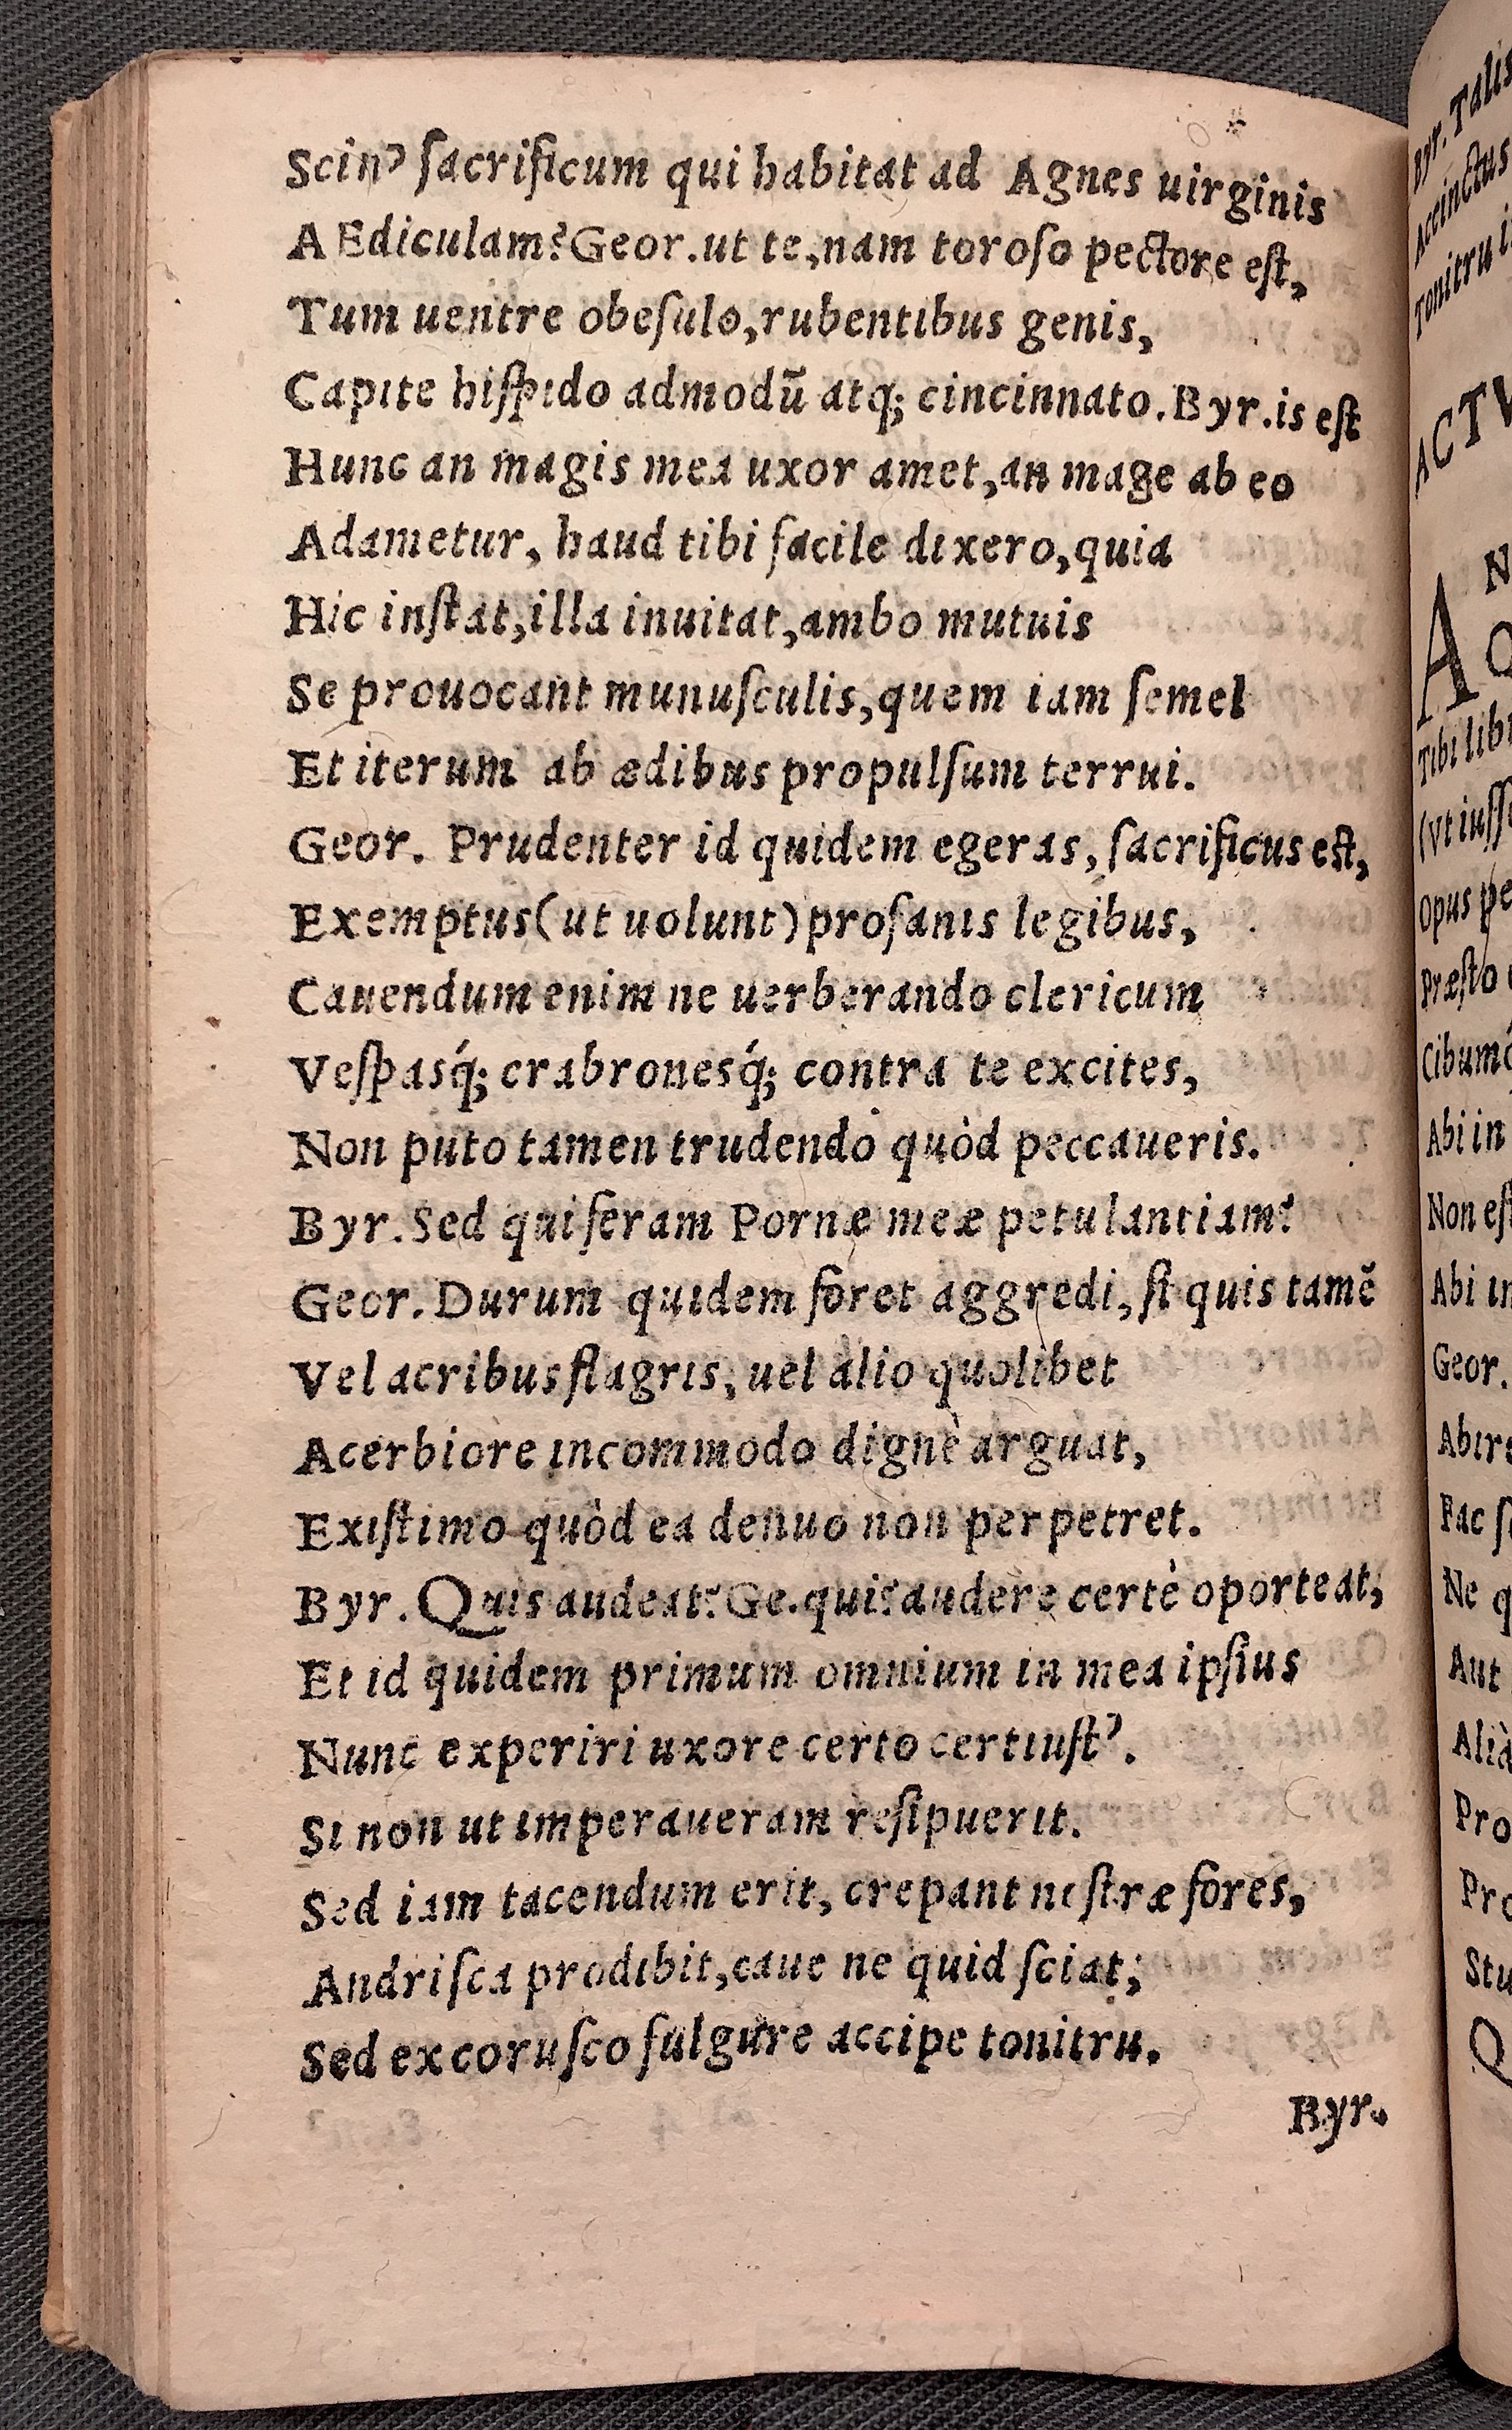 Scin' ſacrificum qui habitat ad Agnes uirginis
AEdiculam? Geor. ut te, nam toroſo pectore eſt,
Tum uentre obeſulo, rubentibus genis,
Capite hiſpido admodū atq; cincinnato. Byr. is eſt
Hunc an magis mea uxor amet, an mage ab eo
Adametur, haud tibi facile dixero, quia
Hic inſtat, illa inuitat, ambo mutuis
Se prouocant munuſculis, quem iam ſemel
Et iterum ab ædibus propulſum terrui.
Geor. Prudenter id quidem egeras, ſacrificus eſt,
Exemptus (ut uolunt) profanis legibus,
Cauendum enim ne uerberando clericum
Veſpasq́; crabronesq́; contra te excites,
Non puto tamen trudendo quòd peccaueris.
Byr. Sed qui feram Pornæ meæ petulantiam?
Geor. Durum quidem foret aggredi, ſi quis tamē
Vel acribus flagris, uel alio quolibet
Acerbiore incommodo dignè arguat,
Exiſtimo quòd ea denuo non perpetret.
Byr. Quis audeat? Ge. quis? audere certè oporteat,
Et id quidem primum omnium in mea ipſius
Nunc experiri uxore certo certiuſt'.
Si non ut imperaueram reſipuerit.
Sed iam tacendum erit, crepant noſtræ fores,
Andriſca prodibit, caue ne quid ſciat;
Sed ex coruſco fulgure accipe tonitru.
Byr.
Byr. Talis
Accinctus
Tonitru
A
Tibi
Opus
Præſto
Abi in
Non
Abi
Geor.
Fac
Ne
Aut